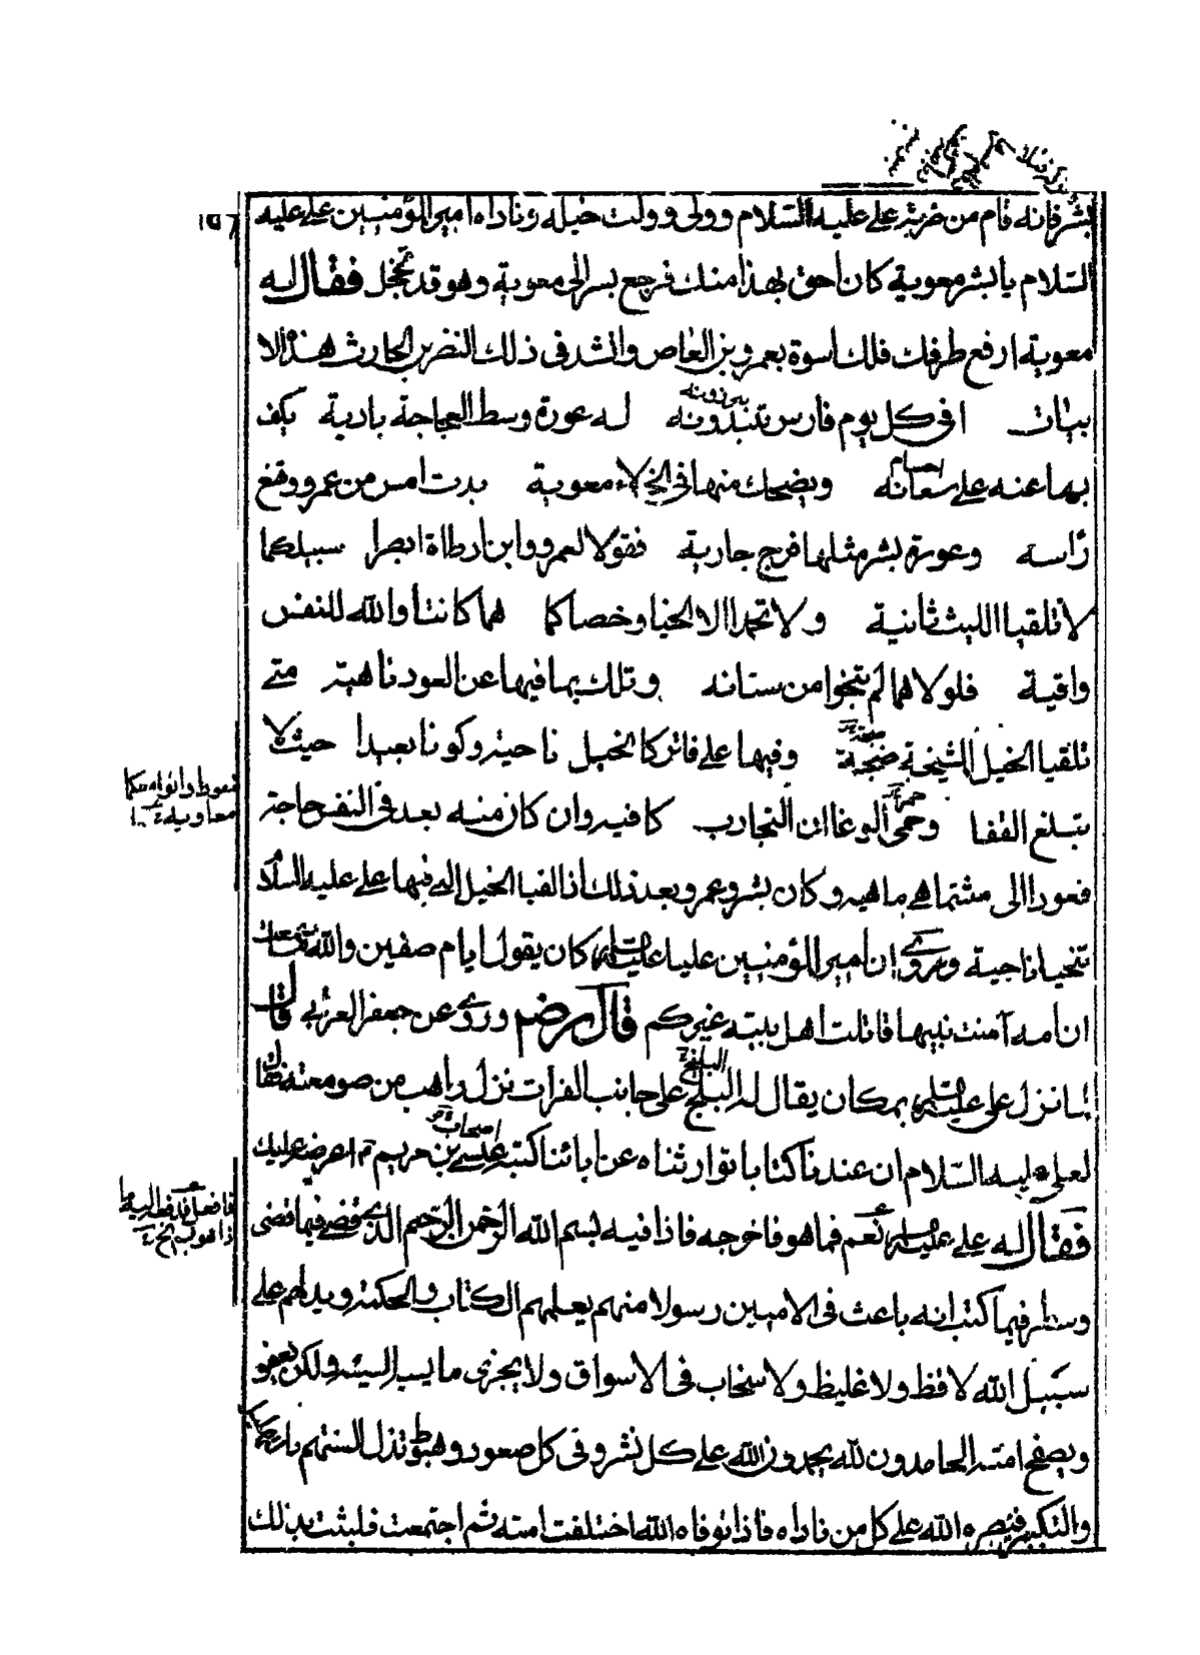 ١٥٦
بشر فانه قام من ضربة على عليه السلام وولى وولت خيله وناداه امير المؤمنين على عليه
السلام يا بشر معوية كان احق بهذا منك فرجع بسر الى معوية وهو قد خجل فقال له
معوية ارفع طرفك فلك اسوة بعمرو بن العاص وانشد فى ذلك النضر بن الحارث هذه الا
بيات افى كل يوم فارس تندبونه له عورة وسط العجاجة بادية يكف
بها عنه على سنانه ويضحك منها فى الخلاء معوية بدت امس من عمرو وقنع
رأسه وعورة بشر مثلها فرج جارية فقولا لعمرو وابن ارطاة ابصرا سبيلكما
لا تلقيا الليث ثانية ولا تحمدا الا الحيا وخصاكما هما كانتا والله للنفس
واقية فلولا هما لم تنجوا من سنانه وتلك بما فيها عن العود ناهية متى
تلقيا الخيل المشيخة ضجة وفيها على فاتركا الخيل ناحية وكونا بعيدا حيث لا
يبلغ القفا وحمى الوغا ان التجارب كافيه وان كان منه بعد فى النفس حاجة
فعودا الى مثتما هى ماهيه وكان بشر وعمرو بعد ذلك اذا لقيا الخيل التى فيها على عليه السلام
تنحيا ناحية وروى ان امير المؤمنين عليا عليه السلام كان يقول ايام صفين والله
ان امه آمنت نبيها قاتلت اهل بيته غيركم قال نصر وروى عن جعفر العرنى قال
لما نزل على عليه السلام بمكان يقال له البليخ على جانب الفرات نزل راهب من صومعته فقال
لعلى عليه السلام ان عندنا كتابا توارثناه عن ابائنا كتبه عيسى بن مريم ثم اعرضه عليك
فقال له على عليه السلام نعم فما هو فاخرجه فاذا فيه بسم الله الرحمن الرحيم الذى قضى فيما قضى
وسطر فيما كتب انه باعث فى الاميين رسولا منهم يعلمهم الكتاب والحكمة ويدلهم على
سبيل الله لا فظ ولا غليظ ولا سخاب فى الاسواق ولا يجزى السيئه ولكن يعفو
ويصفح امته الحامدون لله يحمدون الله على كل نشر وفى كل صعود وهبوط تذل السنتهم
والتكبير فينصره الله على كل من ناداه فاذا توفاه الله اختلفت امته ثم اجتمعت فلبثت بذلك